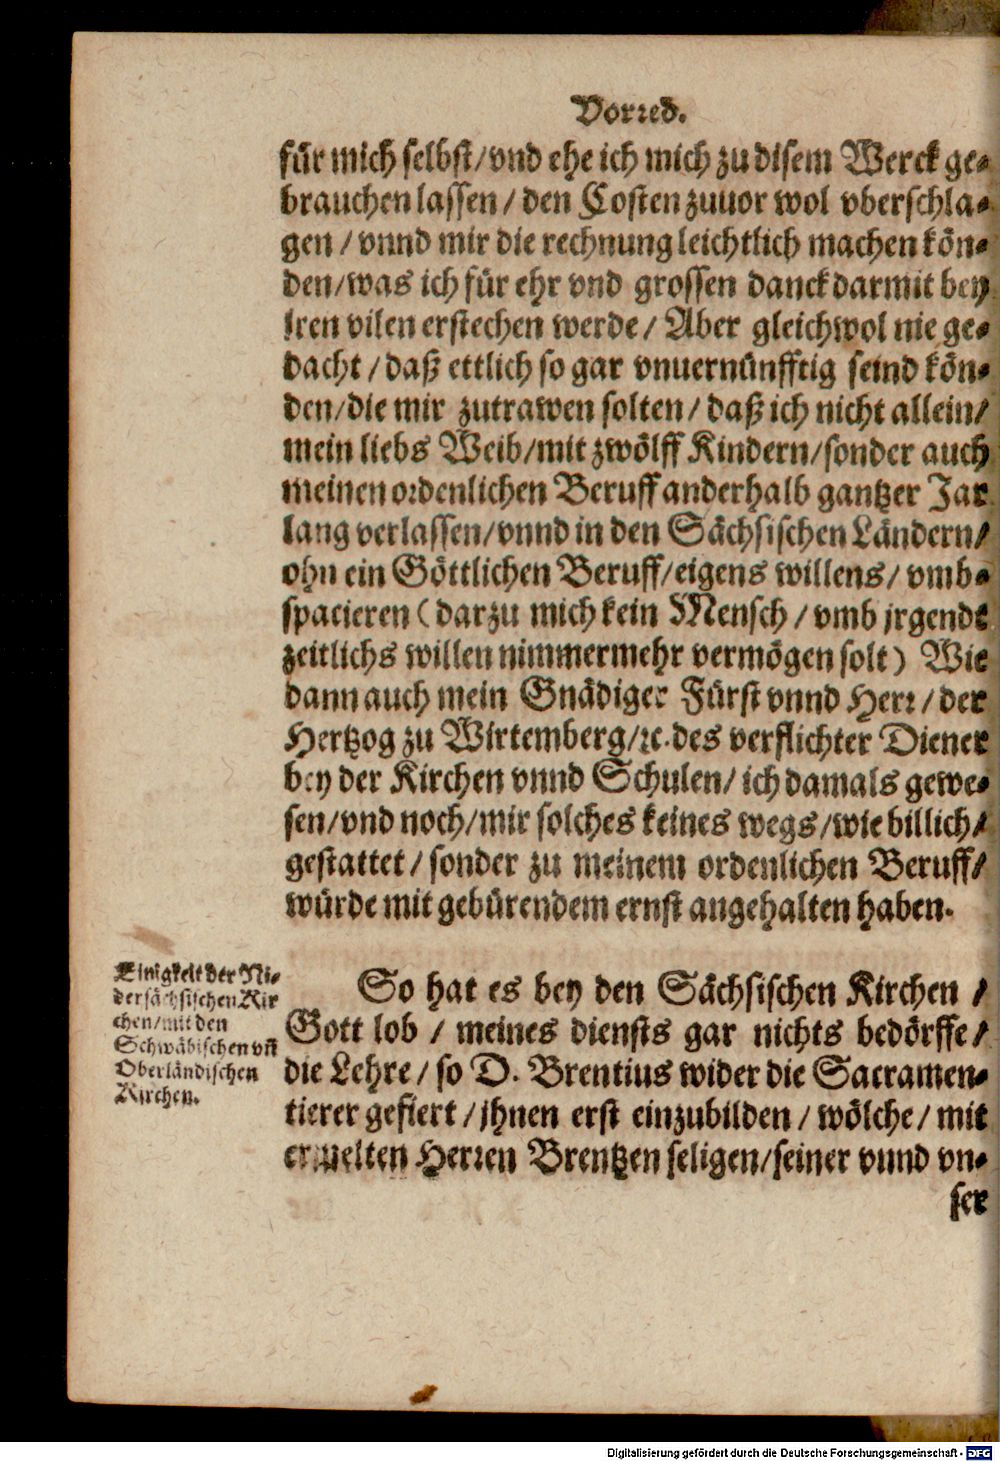 Vorred.
für mich selbst/vnd ehe ich mich zu disem Werck ge-
brauchen lassen/ den Costen zuuor wol vberschla-
gen / vnnd mir die rechnung leichtlich machen kön-
den/was ich für ehr vnd grossen danck darmit bey
jren vilen erstechen werde/ Aber gleichwol nie ge-
dacht / daß ettlich so gar vnuernünfftig seind kön-
den/die mir zutrawen solten/ daß ich nicht allein/
mein liebs Weib/mit zwölff Kindern/sonder auch
meinen ordenlichen Beruff anderhalb gantzer Jar
lang verlassen/vnnd in den Sächsischen Ländern/
ohn ein Göttlichen Beruff/eigens willens/ vmb-
spacieren (darzu mich kein Mensch / vmb jrgends
zeitlichs willen nimmermehr vermögen solt) Wie
dann auch mein Gnädiger Fürst vnnd Herr/ der
Hertzog zu Wirtemberg/ꝛc. des verflichter Diener
bey der Kirchen vnnd Schulen/ ich damals gewe-
sen/vnd noch/mir solches keines wegs/wie billich/
gestattet/ sonder zu meinem ordenlichen Beruff/
würde mit gebürendem ernst angehalten haben.
Einigkeit der Ni-
dersächsischen Kir
chen/mit den
Schwäbischen vñ
Oberländischen
Kirchen.
So hat es bey den Sächsischen Kirchen /
Gott lob / meines diensts gar nichts bedörffe/
die Lehre/ so D. Brentius wider die Sacramen-
tierer gefiert / jhnen erst einzubilden / wölche/ mit
ermelten Herren Brentzen seligen/seiner vnnd vn-
ser
Digitalisierung gefördert durch die Deutsche Forschungsgemeinschaft - DFG